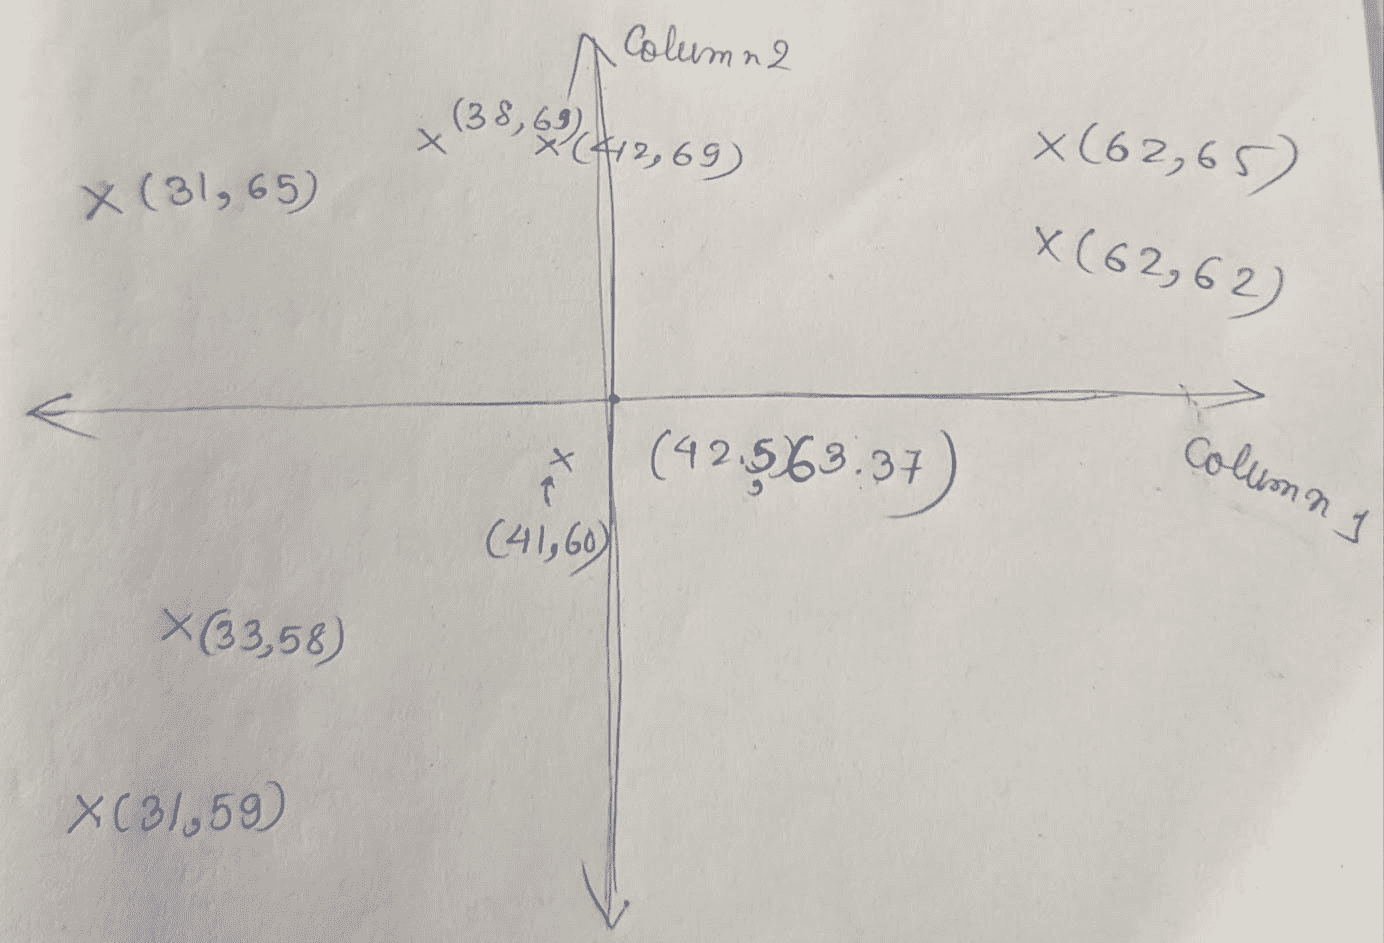 Column2
(38,69)
(42,69)
x(62,65)
x(31,65)
x(62,62)
(42.5,63.37)
Column 1
(41,60)
x(33,58)
x(31,59)